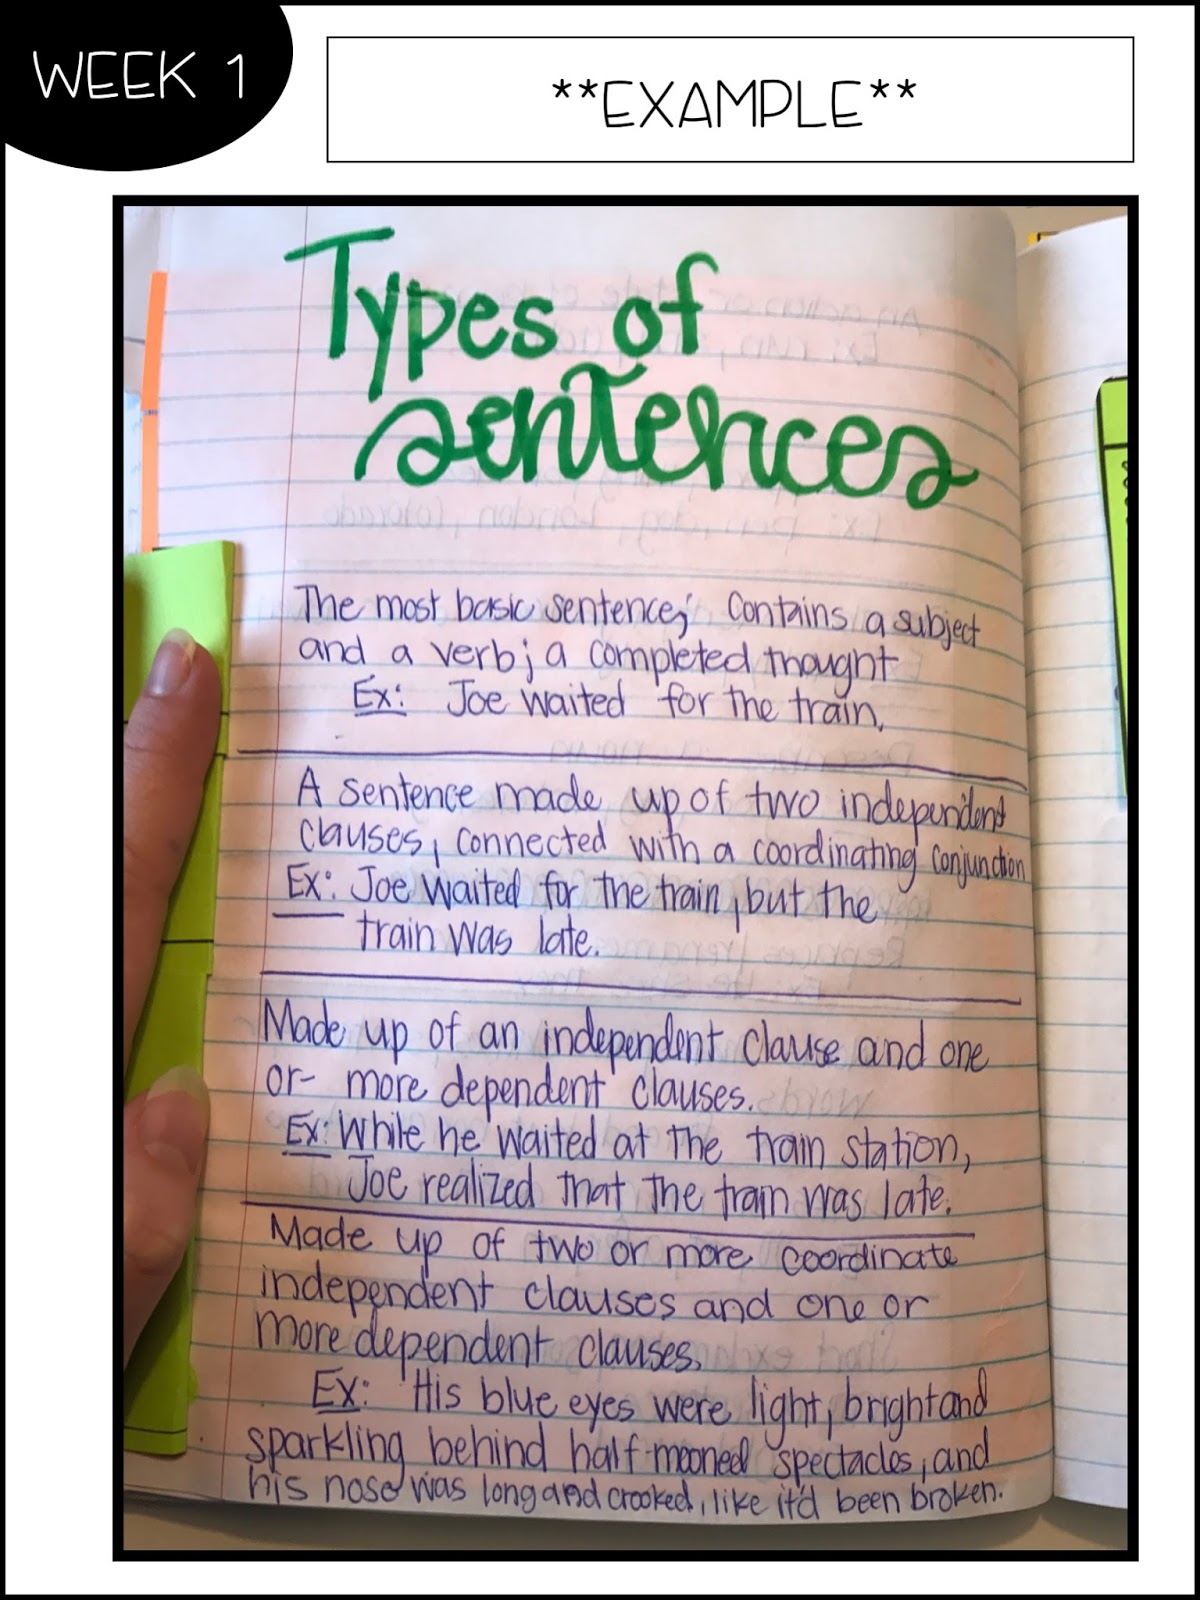 WEEK 1
**EXAMPLE**
Types of
sentences
The most basic sentence; contains a subject
and a verb; a completed thought
Ex: Joe waited for the train.
A sentence made up of two independent
clauses, connected with a coordinating conjunction
Ex: Joe waited for the train, but the
train was late.
Made up of an independent clause and one
or more dependent clauses.
Ex: While he waited at the train station,
Joe realized that the train was late.
Made up of two or more coordinate
independent clauses and one or
more dependent clauses.
Ex: His blue eyes were light, bright and
sparkling behind half-mooned spectacles, and
his nose was long and crooked, like it'd been broken.